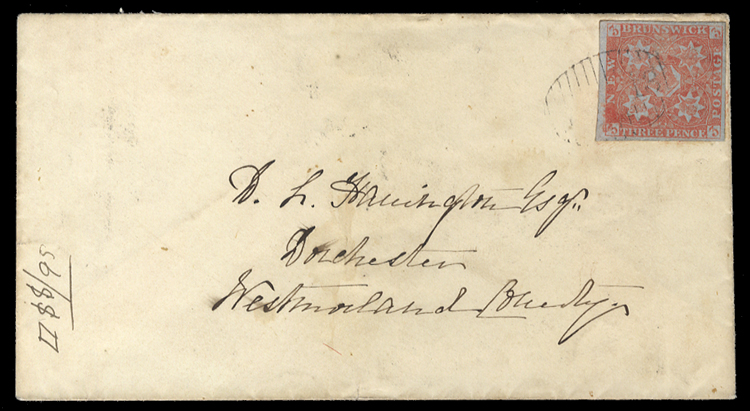 BRUNSWICK
NEW
POSTAGE
THREE PENCE
3
3
3
3
D. L. Hanington Esqr.
Dorchester
Westmorland County